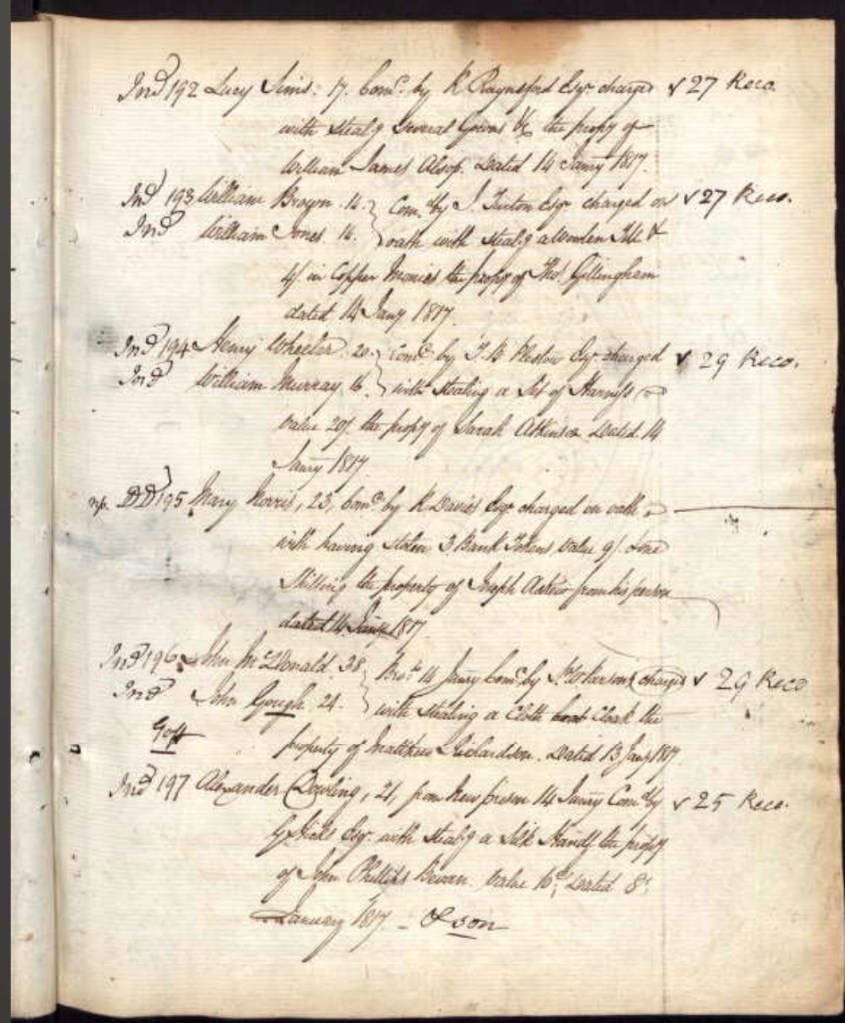 Ind 192 Lucy Sims. 17. Comd. by R Raynsford Esqr charged v 27 Reco.
with Stealg Several Gowns &c the propy of
William James Alsop. Dated 14 Jany 1817.
Ind 193 William Brogon. 14. Comd. by J. Turton Esqr charged on v 27 Reco.
Ind William Jones. 14. oath with Stealg a Wooden Till &
4/. in Copper Monies the propy of Thos. Gillingham
dated 14 Jany 1817.
Ind 194 Henry Wheeler. 20. Comd. by Esqr. charged v 29 Reco.
Ind William Murray. 16. with Stealing a Set of Harness
value 20/. the propy of Sarah Atkinson Dated 14
Jany 1817
DD 195 Mary Norris, 23, Comd. by R Davies Esqr charged on oath
with having stolen 3 Bank Tokens value 9/. & one
Shilling the property of Joseph from his person
dated 14 Jany 1817
Ind 196 John McDonald. 38 Brot. 14 Jany Comd. by charged v 29 Reco
Ind John Gough. 24. with Stealing a Cloth Coat Cloak the
Goff property of Matthew Richardson. Dated 13 Jany 1817
Ind 197 Alexander Dowling, 21, from New prison 14 Jany Comd. by v 25 Reco.
Hicks Esqr. with Stealg a Silk Handf the propy
of John Phillips Bevan value 10d. Dated 8
January 1817 - & son